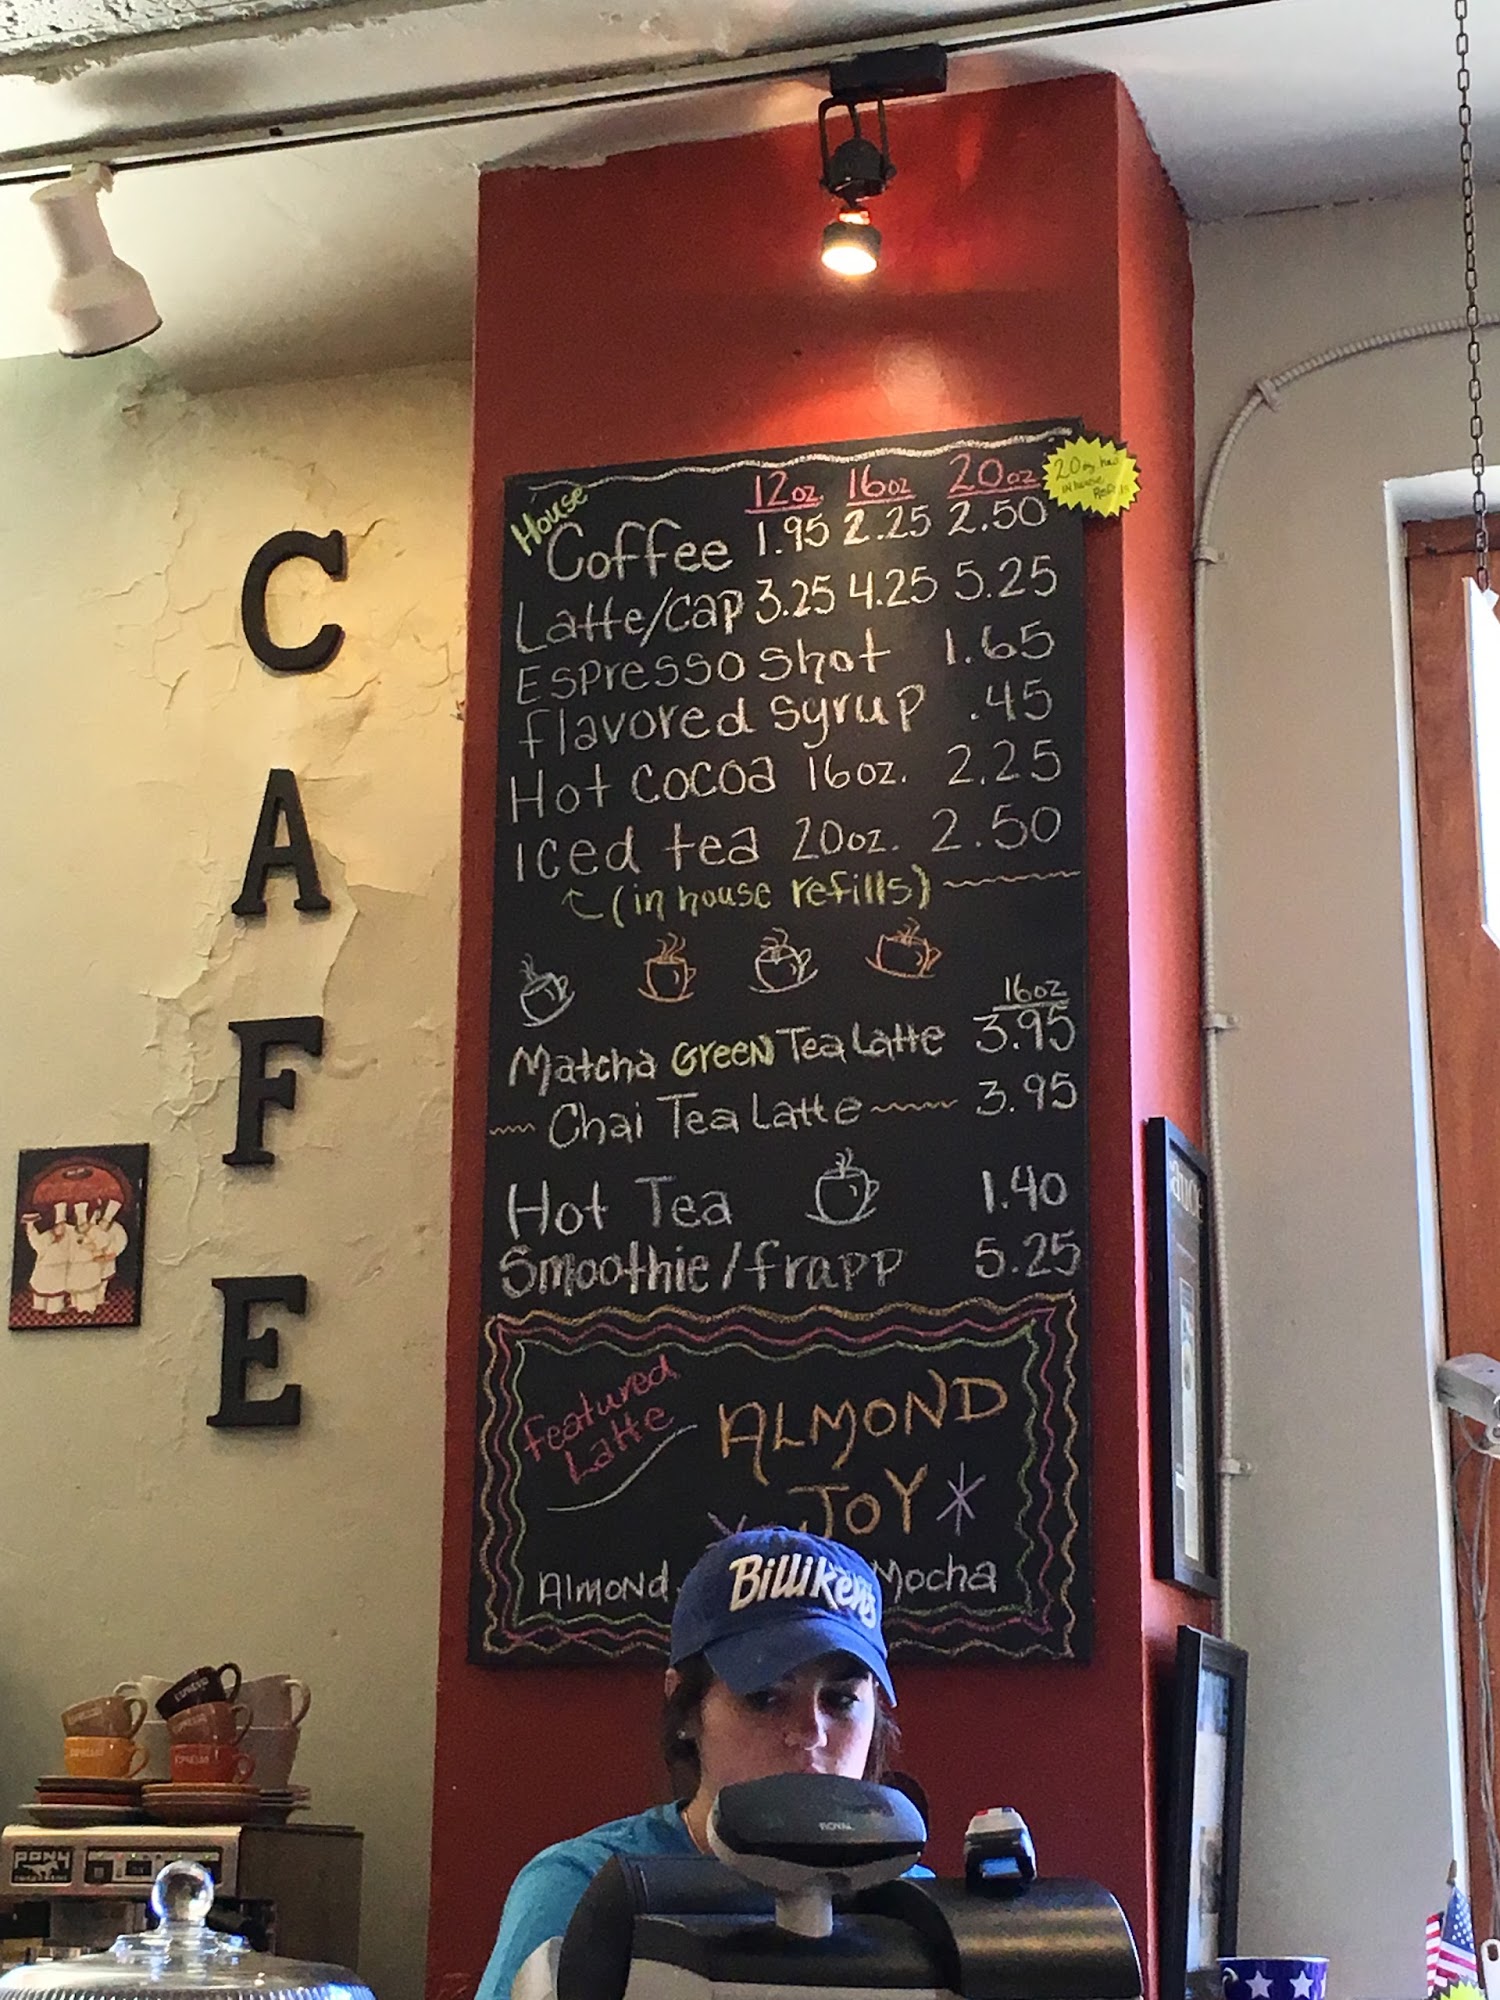 12oz. 16oz 20oz
20oz has
in house
Refills
House
Coffee 1.95 2.25 2.50
Latte/Cap 3.25 4.25 5.25
Espresso shot 1.65
flavored syrup .45
Hot cocoa 16oz. 2.25
Iced tea 20oz. 2.50
(in house refills)
16oz
Matcha GREEN Tea Latte 3.95
Chai Tea Latte 3.95
Hot Tea 1.40
Smoothie/frapp 5.25
Featured
Latte
ALMOND
JOY
Almond Mocha
Billikens
CAFE
ROYAL
PONY
ESPRESSO